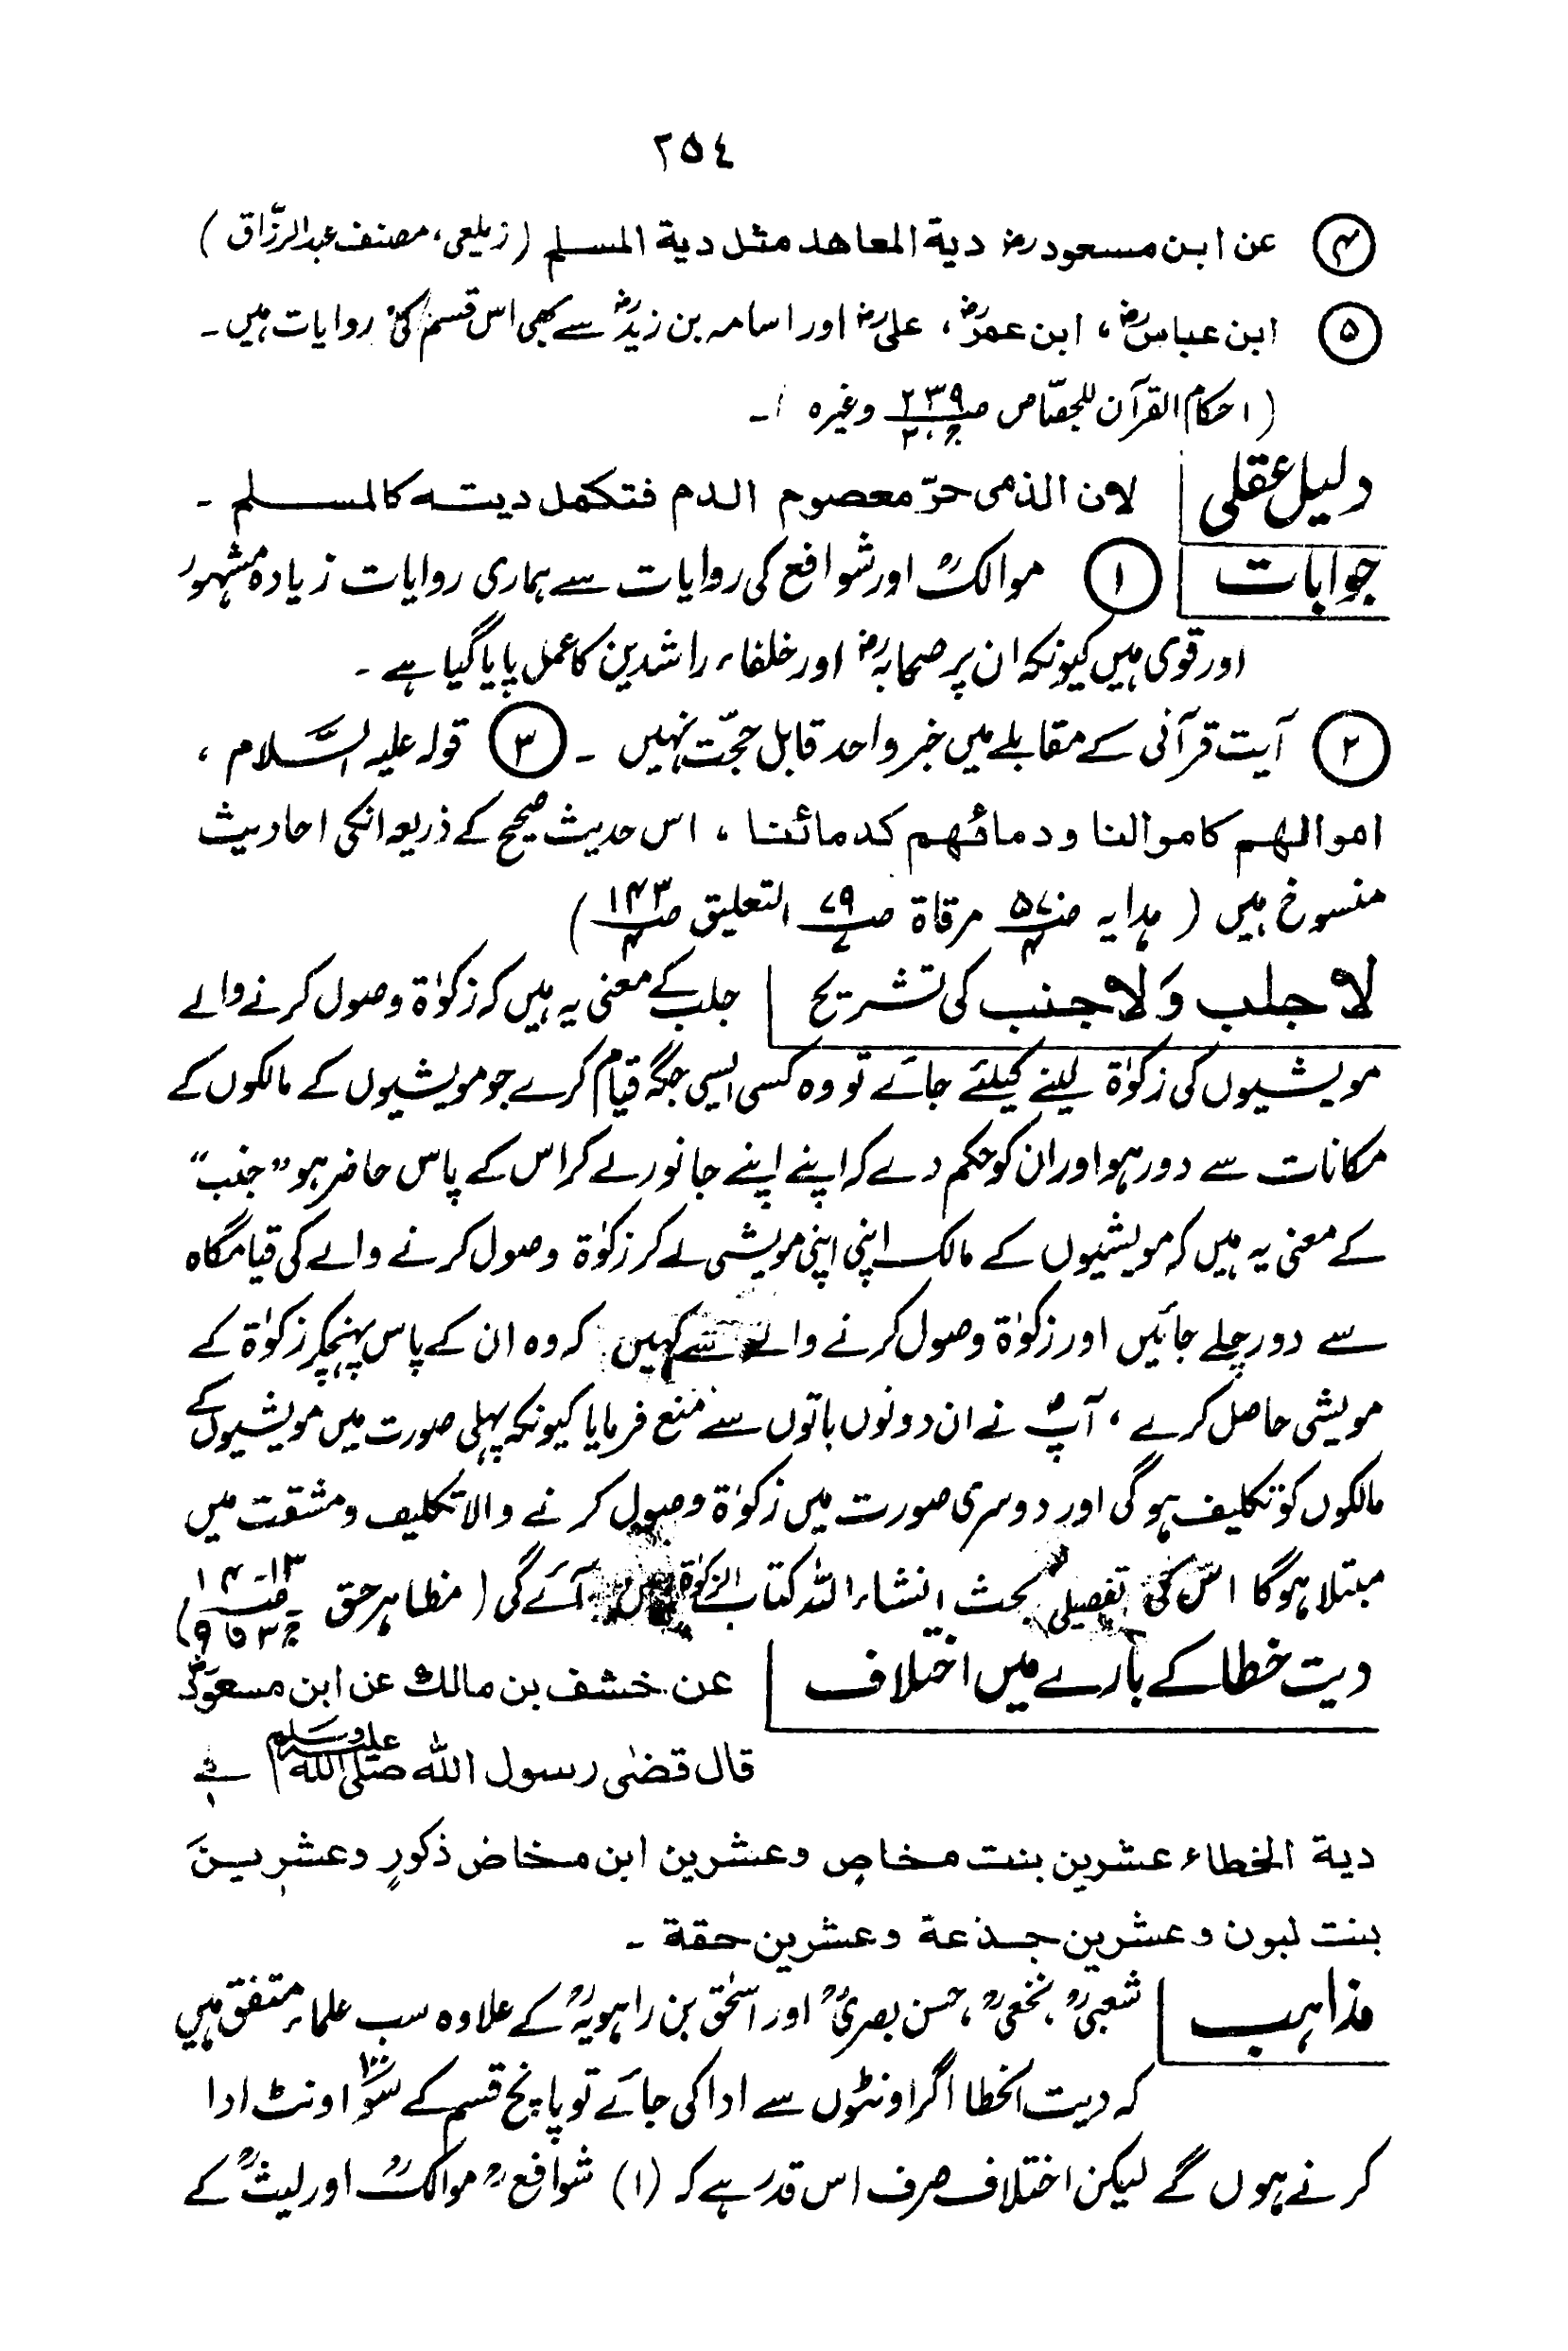 ٢٥٤
④ عن ابن مسعودرض دية المعاهد مثل دية المسلم (زیلعی، مصنف عبدالرزّاق)
⑤ ابن عباسرض، ابن عمررض، علیرض اور اسامہ بن زیدرض سے بھی اس قسم کی روایات ہیں۔
(احکام القرآن للجصّاص صـ ٢٣٩ ج ٢ وغیرہ)۔
دلیل عقلی لان الذمی حرّ معصوم الدم فتکمل دیتہ کالمسلم ۔
جوابات ① موالکؒ اور شوافع کی روایات سے ہماری روایات زیادہ مشہور
اور قوی ہیں کیونکہ ان پر صحابہرض اور خلفاء راشدین کا عمل پایا گیا ہے ۔
② آیت قرآنی کے مقابلے میں خبر واحد قابل حجّت نہیں ۔ ③ قولہ علیہ السَّلام ،
اموالهم كاموالنا ودمائهم كدمائنا ، اس حدیث صحیح کے ذریعہ انکی احادیث
منسوخ ہیں (ہدایہ صـ ٥٧٠ ج ٤ مرقاة صـ ٧٩ ج ٧ التعلیق صـ ١٤٣ ج ٤)
لا جلب وَلا جنب کی تشریح جلب کے معنی یہ ہیں کہ زکوٰۃ وصول کرنے والے
مویشیوں کی زکوٰۃ لینے کیلئے جائے تو وہ کسی ایسی جگہ قیام کرے جو مویشیوں کے مالکوں کے
مکانات سے دور ہو اور ان کو حکم دے کہ اپنے اپنے جانور لے کر اس کے پاس حاضر ہو "جنب"
کے معنی یہ ہیں کہ مویشیوں کے مالک اپنی اپنی مویشی لے کر زکوٰۃ وصول کرنے والے کی قیامگاہ
سے دور چلے جائیں اور زکوٰۃ وصول کرنے والے سے کہیں کہ وہ ان کے پاس پہنچکر زکوٰۃ کے
مویشی حاصل کرے ، آپؐ نے ان دونوں باتوں سے منع فرمایا کیونکہ پہلی صورت میں مویشیوں کے
مالکوں کو تکلیف ہوگی اور دوسری صورت میں زکوٰۃ وصول کرنے والا تکلیف ومشقت میں
مبتلا ہوگا اس کی تفصیلی بحث انشاء اللہ کتاب الزکوٰۃ میں آئے گی (مظاہر حق
دیت خطا کے بارے میں اختلاف عن خشف بن مالك عن ابن مسعودرض
قال قضٰى رسول الله صلى الله عليه وسلم في
دية الخطاء عشرين بنت مخاض وعشرين ابن مخاض ذكورٍ وعشرينَ
بنت لبون وعشرين جذعة وعشرين حقة ۔
مذاہب شعبیؒ، نخعیؒ، حسن بصریؒ اور اسحٰق بن راہویہؒ کے علاوہ سب علماء متفق ہیں
کہ دیت الخطا اگر اونٹوں سے ادا کی جائے تو پانچ قسم کے سو ١٠٠ اونٹ ادا
کرنے ہوں گے لیکن اختلاف صرف اس قدر ہے کہ (١) شوافعؒ موالکؒ اور لیثؒ کے